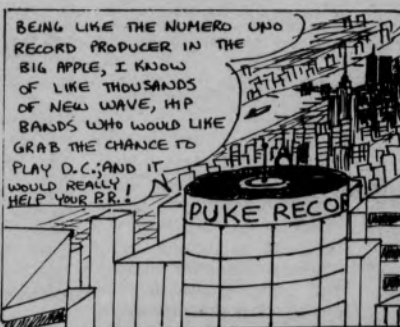 BEING LIKE THE NUMERO UNO
RECORD PRODUCER IN THE
BIG APPLE, I KNOW
OF LIKE THOUSANDS
OF NEW WAVE, HIP
BANDS WHO WOULD LIKE
GRAB THE CHANCE TO
PLAY D.C.; AND IT
WOULD REALLY
HELP YOUR P.R.!
PUKE RECOR